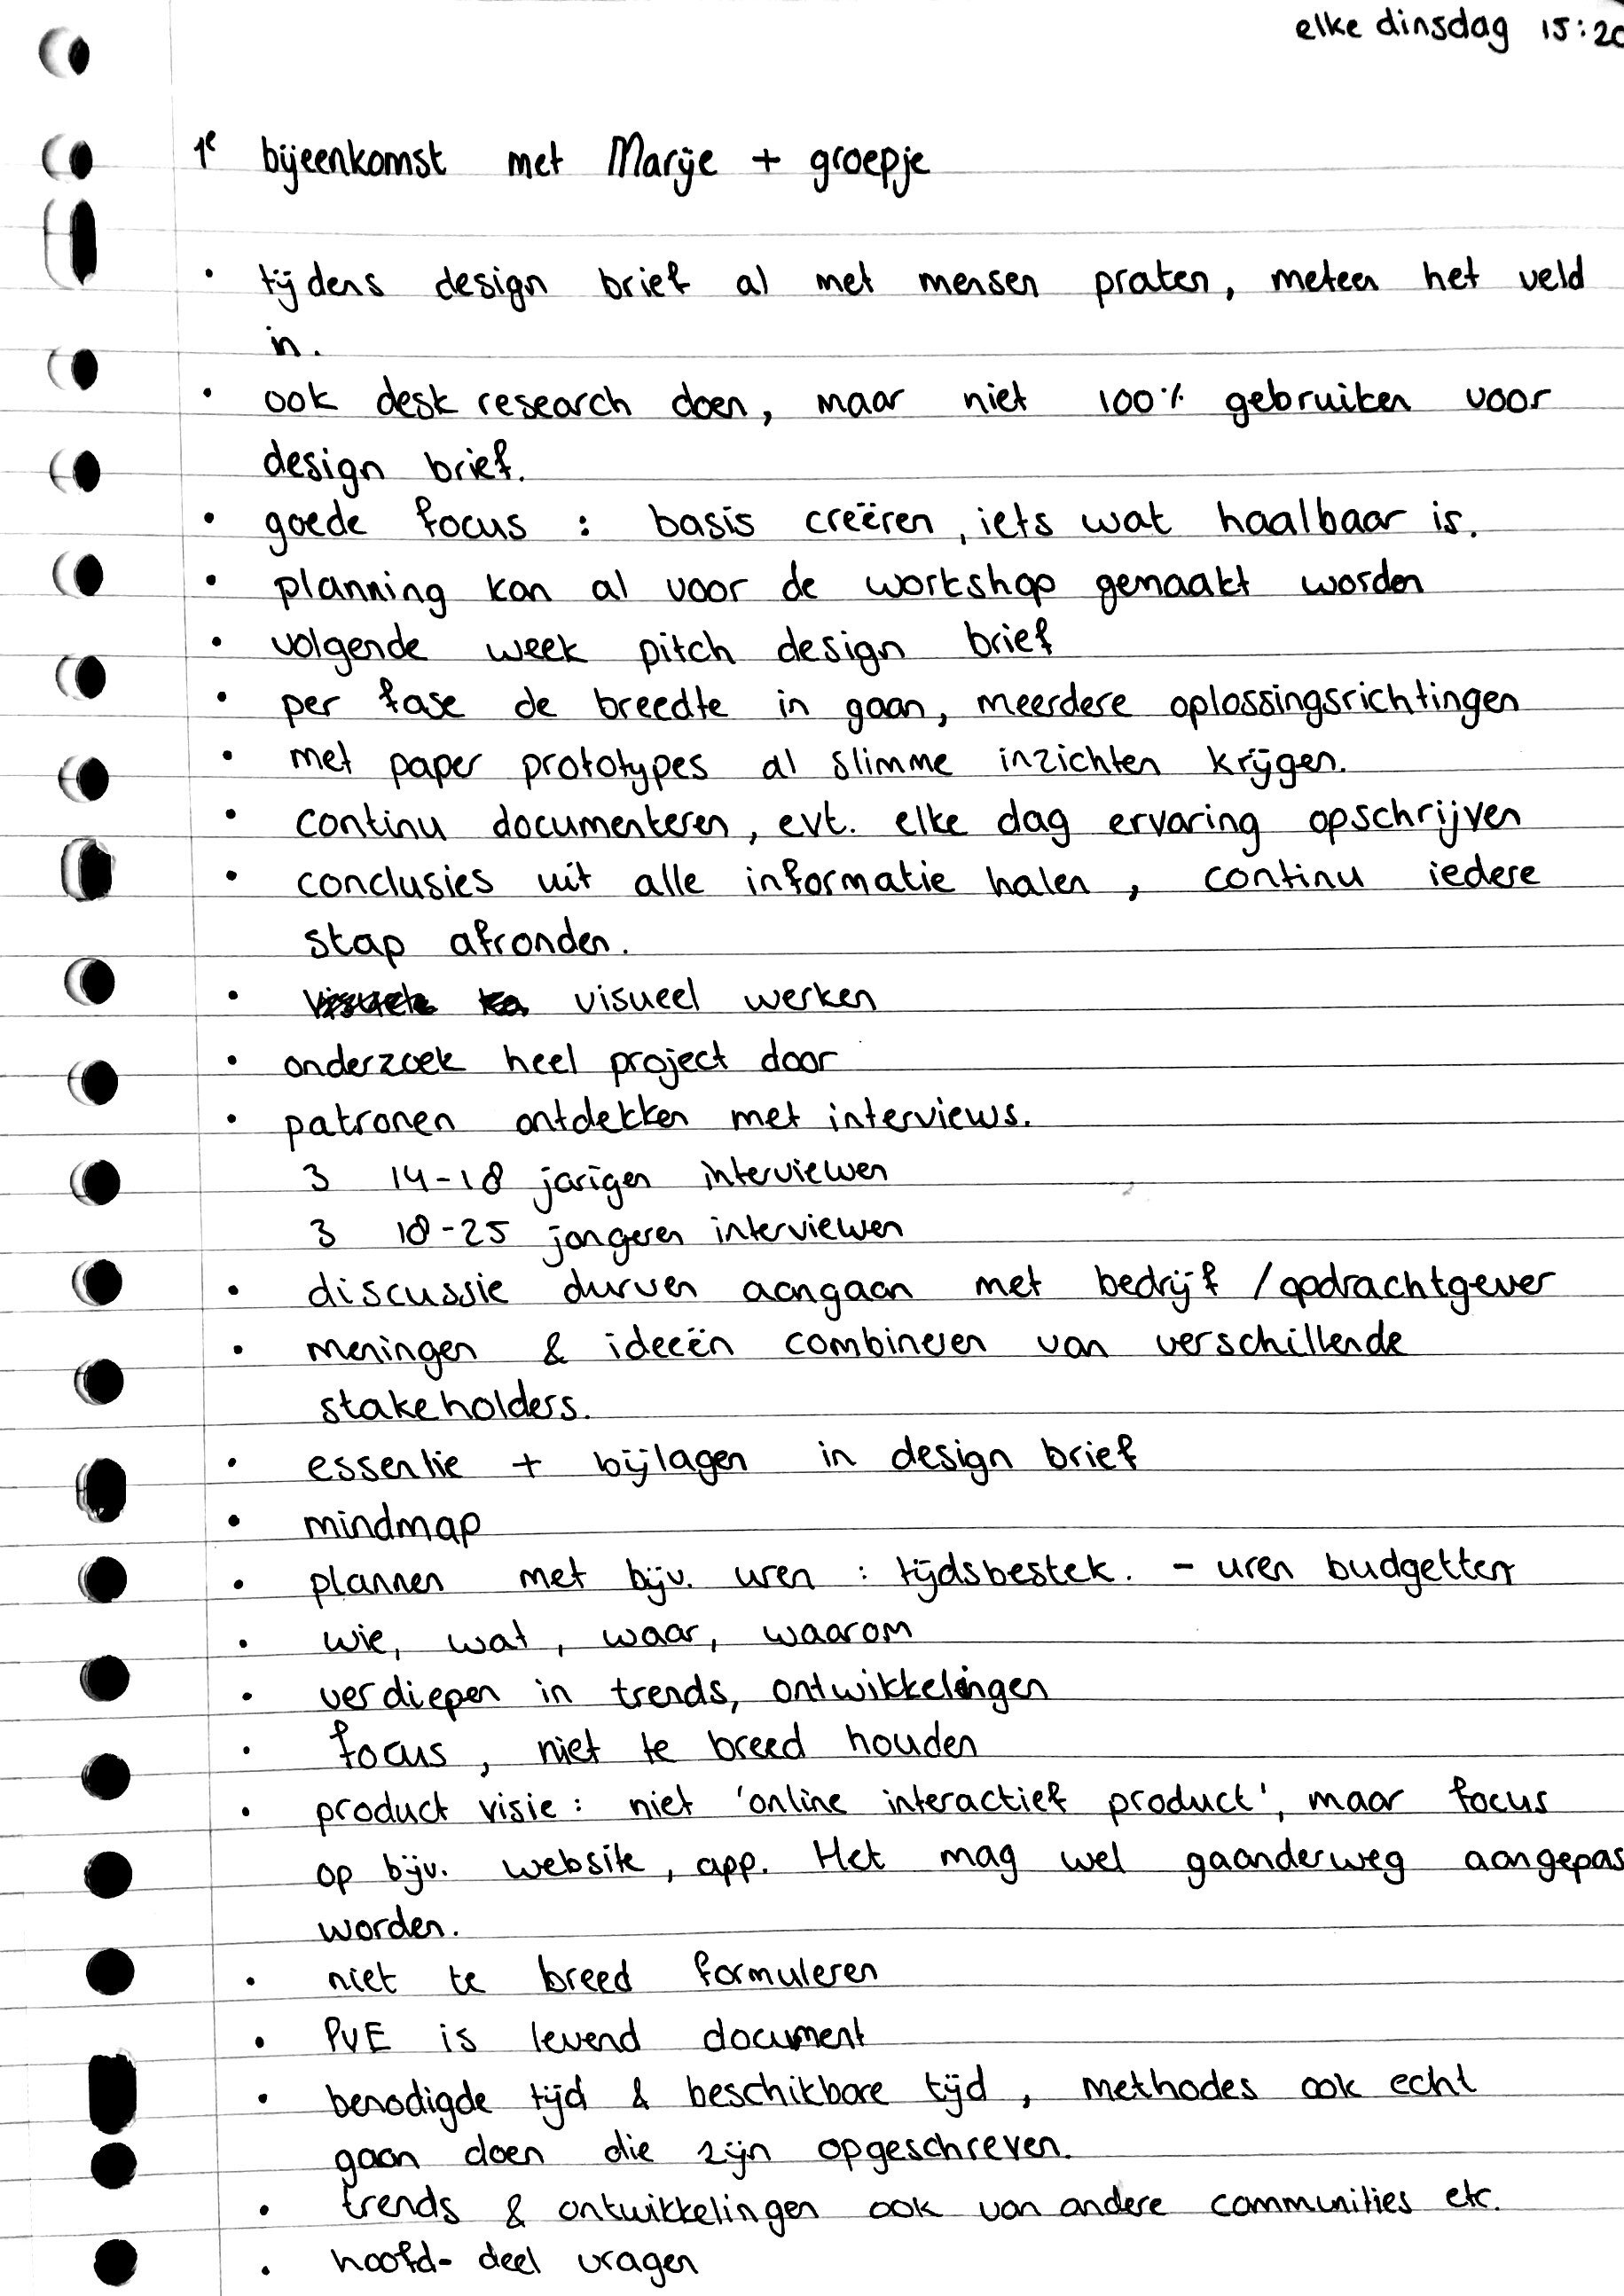 elke dinsdag 15:20
1e bijeenkomst met Marije + groepje
• tijdens design brief al met mensen praten, meteen het veld
in.
• ook desk research doen, maar niet 100% gebruiken voor
design brief.
• goede focus : basis creëren, iets wat haalbaar is.
• planning kan al voor de workshop gemaakt worden
• volgende week pitch design brief
• per fase de breedte in gaan, meerdere oplossingsrichtingen
• met paper prototypes al slimme inzichten krijgen.
• continu documenteren, evt. elke dag ervaring opschrijven
• conclusies uit alle informatie halen, continu iedere
stap afronden.
• visueel werken
• onderzoek heel project door
• patronen ontdekken met interviews.
3 14-18 jarigen interviewen
3 18-25 jongeren interviewen
• discussie durven aangaan met bedrijf / opdrachtgever
• meningen & ideeën combineren van verschillende
stakeholders.
• essentie + bijlagen in design brief
• mindmap
• plannen met bijv. uren : tijdsbestek. - uren budgetten
• wie, wat, waar, waarom
• verdiepen in trends, ontwikkelingen
• focus, niet te breed houden
• product visie: niet 'online interactief product', maar focus
op bijv. website, app. Het mag wel gaanderweg aangepas
worden.
• niet te breed formuleren
• PVE is levend document
• benodigde tijd & beschikbare tijd, methodes ook echt
gaan doen die zijn opgeschreven.
• trends & ontwikkelingen ook van andere communities etc.
• hoofd- deel vragen